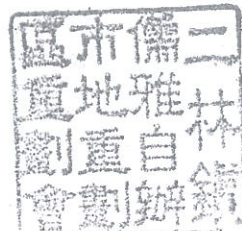 二林鎮
儒雅自辦
市地重劃
區重劃會